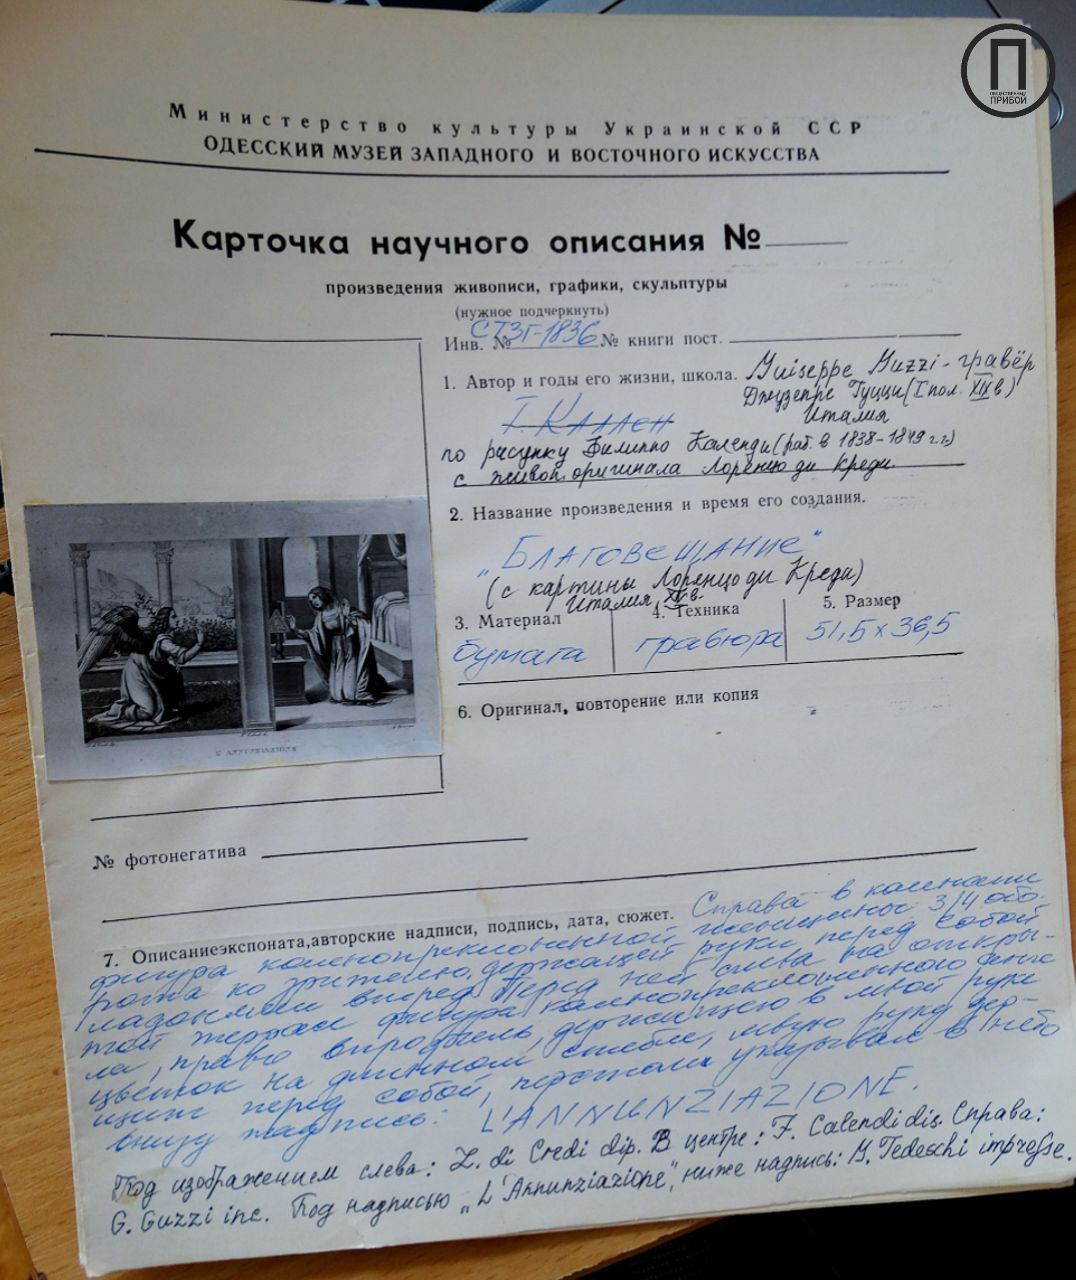 П
ОБЩЕСТВЕННЫЙ
ПРИБОЙ
Министерство культуры Украинской ССР
ОДЕССКИЙ МУЗЕЙ ЗАПАДНОГО И ВОСТОЧНОГО ИСКУССТВА
Карточка научного описания №
произведения живописи, графики, скульптуры
(нужное подчеркнуть)
Инв. № СТЗГ-1836 № книги пост.
1. Автор и годы его жизни, школа. Guiseppe Guzzi - гравёр
Джузеппе Гуцци (I пол. XIX в)
Италия
по рисунку Филиппо Календи (раб. в 1838-1849 г.г.)
с живоп. оригинала Лоренцо ди Креди.
2. Название произведения и время его создания.
„БЛАГОВЕЩАНИЕ"
(с картины Лоренцо ди Креди)
Италия, XV в.
3. Материал 4. Техника 5. Размер
бумага гравюра 51,5 х 36,5
6. Оригинал, повторение или копия
L'ANNUNZIAZIONE
№ фотонегатива
7. Описание экспоната, авторские надписи, подпись, дата, сюжет. Справа в комнате
фигура коленопреклоненной женщины 3/4 обо-
рота ко зрителю, держащей руки перед собой
ладонями вперед. Перед ней слева на откры-
той террасе фигура коленопреклоненного анге
ла, право в профиль, держащего в левой руке
цветок на длинном стебле, правую руку дер-
щит перед собой, перстами указывает в небо
внизу надпись: L'ANNUNZIAZIONE.
Под изображением слева: L. di Credi dip. В центре: F. Calendi dis. Справа:
G. Guzzi inc. Под надписью „L'Annunziazione", ниже надпись: G. Tedeschi impresse.